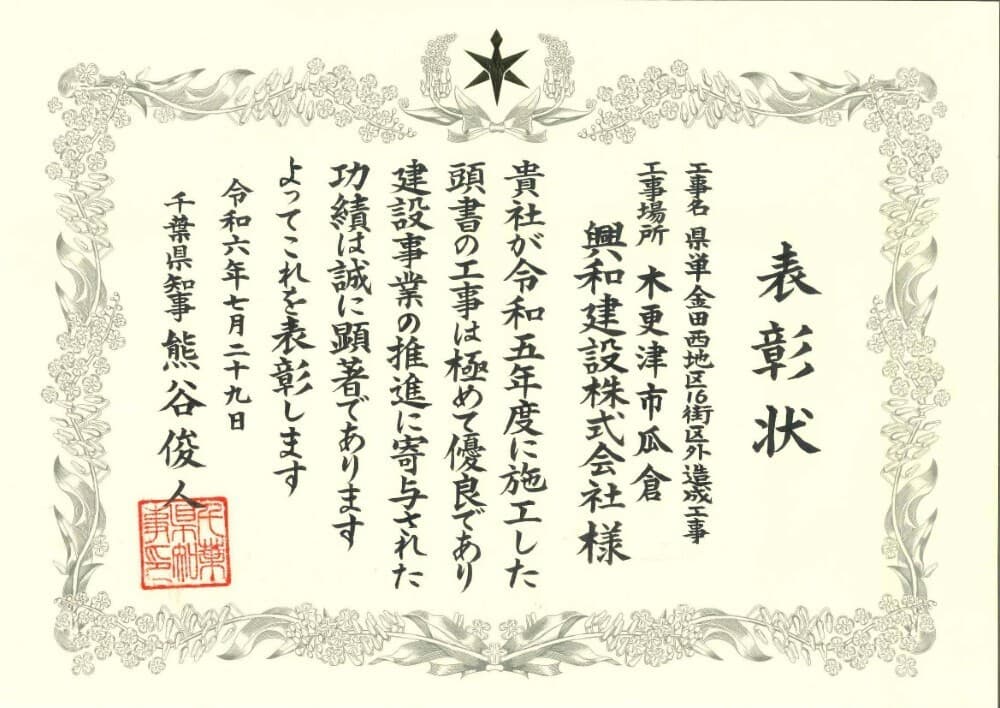 表彰状
工事名 県単金田西地区16街区外造成工事
工事場所 木更津市瓜倉
興和建設株式会社様
貴社が令和五年度に施工した
頭書の工事は極めて優良であり
建設事業の推進に寄与された
功績は誠に顕著であります
よってこれを表彰します
令和六年七月二十九日
千葉県知事 熊谷俊人
千葉県知事印